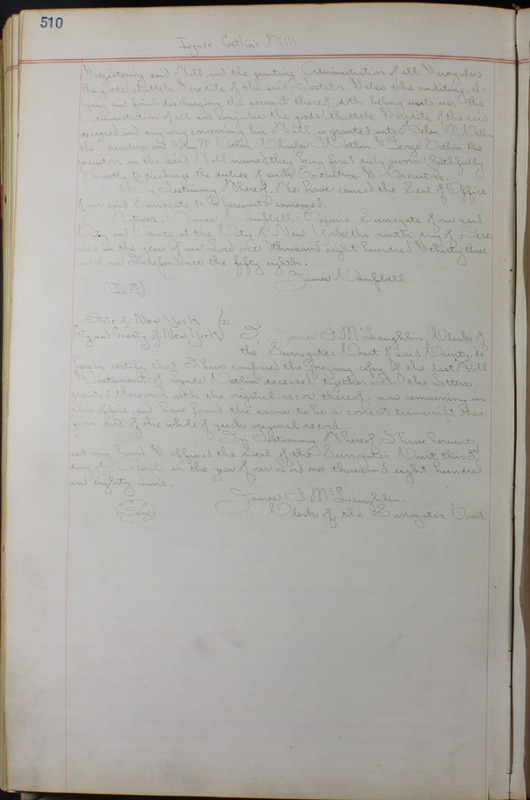 510
Catlin's Will
registering said Will, and the granting Administration of all & singular
the goods, chattels & credits of the said Testator & also the auditing, al-
lowing and final discharging the account thereof, doth belong unto us, the
Administration of all and singular the goods, chattels & credits of the said
deceased, and any way concerning his Will, is granted unto M.
the Executrix and M. Charles Catlin & George Catlin the
executors in the said Will named, they being first duly sworn faithfully
& honestly to discharge the duties of such Executrix & Executors.
In Testimony Whereof, We have caused the Seal of Office
of our said Surrogate to be hereunto annexed.
Witness, James Campbell Esquire, Surrogate of our said
City and County, at the City of New York the ninth day of
in the year of our Lord one thousand eight hundred & thirty three
and of our Independence the fifty eighth.
James Campbell
(L.S)
State of New York } ss
City and County of New York } I James J. McLaughlin, Clerk of
the Surrogate's Court of said County, do
hereby certify that I have compared the foregoing copy of the last Will
& Testament of Catlin deceased, together with the Letters
thereon, with the original record thereof, now remaining in
this office, and have found the same to be a correct transcript there-
from and of the whole of such original record.
In Testimony Whereof, I have hereunto
set my hand & affixed the Seal of the Surrogate's Court, this 3rd
day of April in the year of our Lord one thousand eight hundred
and eighty nine.
James J. McLaughlin,
Seal Clerk of the Surrogate's Court